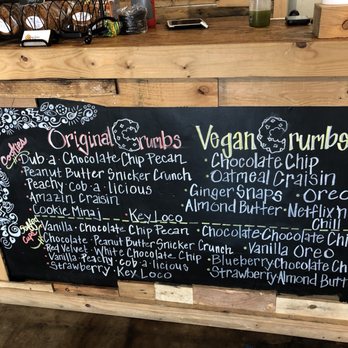 Original Crumbs
cookies
Dub·a·Chocolate Chip Pecan
Peanut Butter Snicker Crunch
Peachy·cob·a·licious
Amazin Craisin
Cookie Mina!
Key Loco
Vegan Crumbs
Chocolate Chip
Oatmeal Craisin
Ginger Snaps · Oreo
Almond Butter · Netflix n
Chill
Vanilla · Chocolate Chip Pecan
Chocolate · Peanut Butter Snicker Crunch
Red Velvet · White Chocolate Chip
Vanilla · Peachy · cob·a·licious
Strawberry · Key Loco
Chocolate · Chocolate Chi
Vanilla Oreo
Blueberry · Chocolate Ch
Strawberry Almond Butt